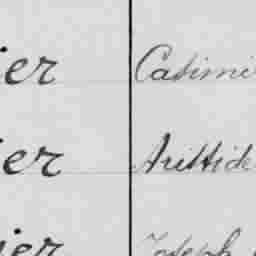 ier Casimi
ier Aristide
ier Joseph